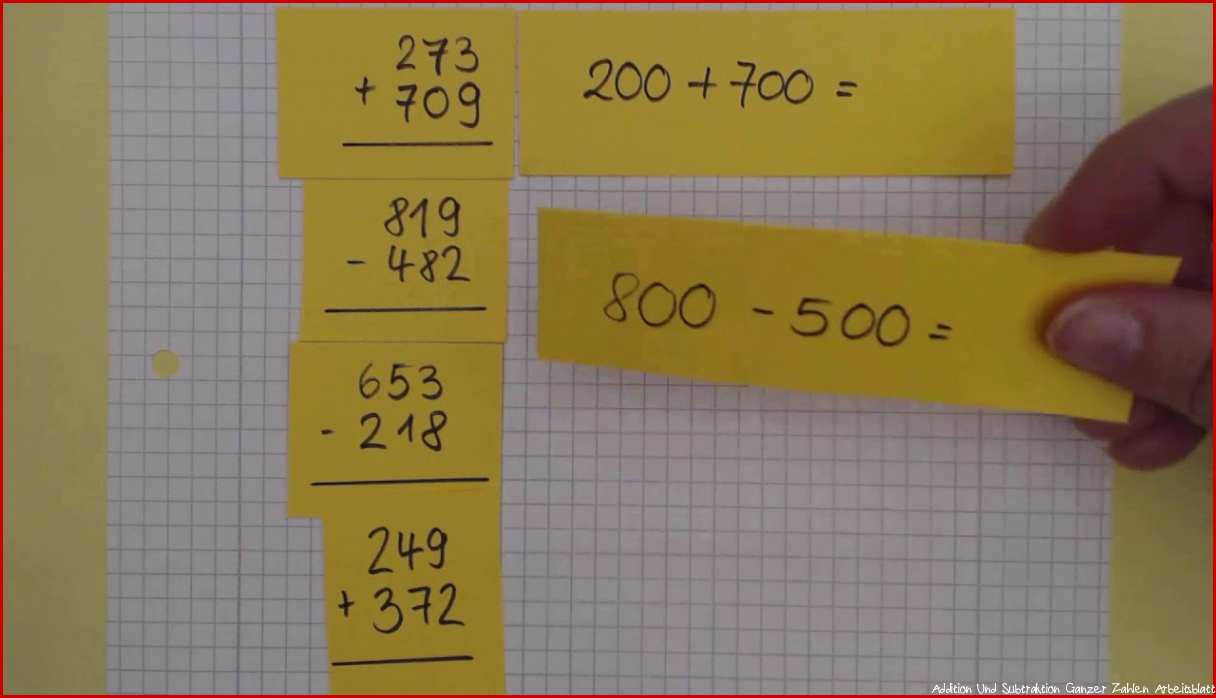 273
+ 709
200 + 700 =
819
- 482
800 - 500 =
653
- 218
249
+ 372
Addition Und Subtraktion Ganzer Zahlen Arbeitsblatt